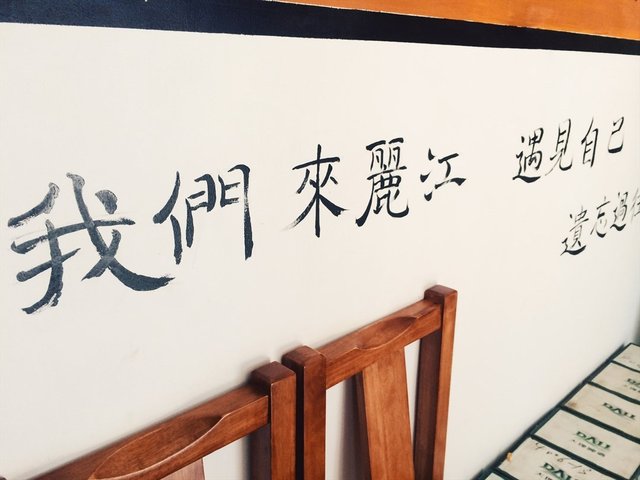 我們 來麗江 遇見自己
遺忘過
DALI
DALI
DALI